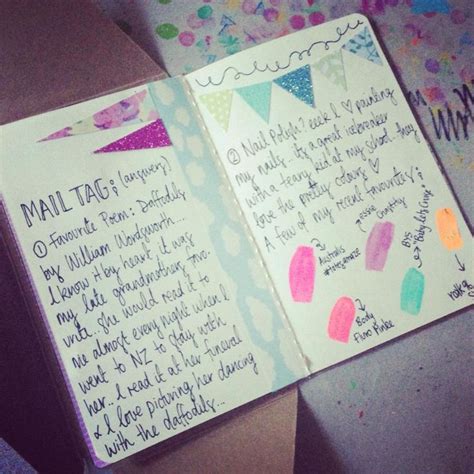 MAIL TAG: (answers)
① Favourite Poem: Daffodils
by William Wordsworth...
I know it by heart, it was
my late grandmothers favo-
urite. She would read it to
me almost every night when I
went to NZ to stay with
her. I read it at her funeral
& I love picturing her dancing
with the daffodils...
② Nail Polish? eeek I ♡ painting
my nails - its a great icebreaker
with a teary kid at my school. they
love the pretty colours ♡
A few of my recent favourites:
Australis
essie
BYS
"Baby Let's
Body